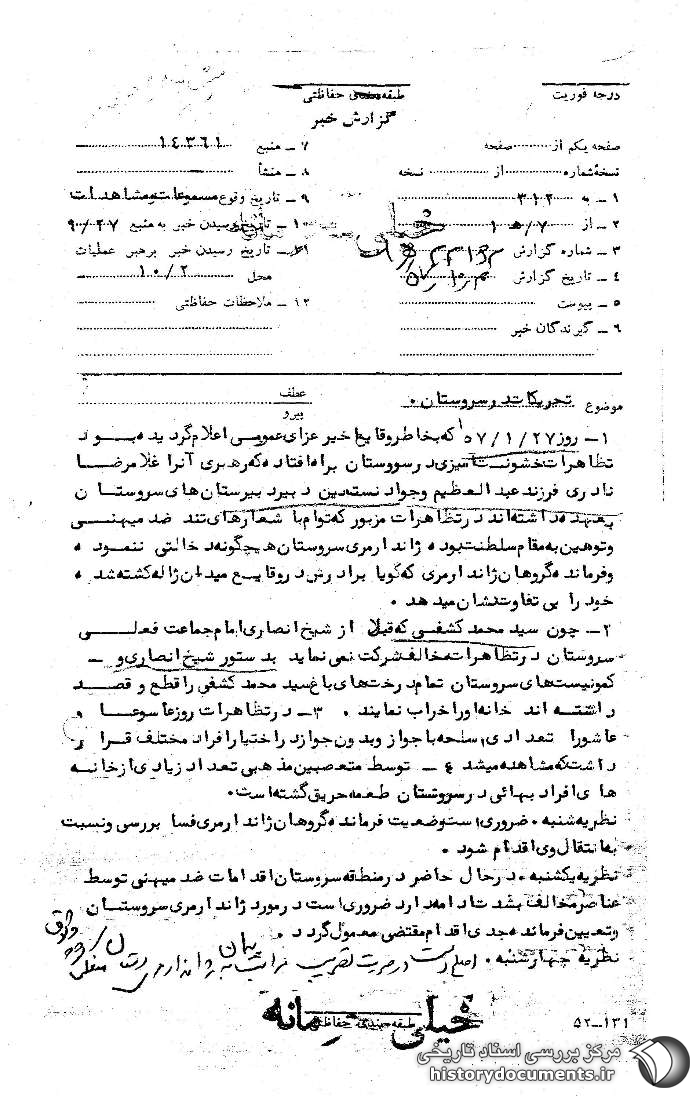 درجه فوریت
طبقه‌بندی حفاظتی
گزارش خبر
صفحه یکم از صفحه
نسخهٔ شماره از نسخه
۱ – به ۳۱۲
۲ – از ۷/ه۱
۳ – شماره گزارش
۴ – تاریخ گزارش
۵ – پیوست
۶ – گیرندگان خبر
۷ – منبع ۱۴۳۶۱
۸ – منشأ
۹ – تاریخ وقوع مسموعات و مشاهدات
۱۰ – تاریخ رسیدن خبر به منبع
۱۱ – تاریخ رسیدن خبر برهبر عملیات
محل ۱۰/۲
۱۲ – ملاحظات حفاظتی
موضوع تحریکات در سروستان ۰
عطف
پیرو
۱– روز ۵۷/۱/۲۷ که بخاطر وقایع اخیر عزای عمومی اعلام گردیده بود
تظاهرات خشونت آمیزی در سروستان براه افتاده که رهبری آنرا غلامرضا
نادری فرزند عبدالعظیم وجواد نسته‌ن دبیر دبیرستان های سروستان
بعهده داشته‌اند در تظاهرات مزبور که توام با شعارهای تند ضد میهنی
و توهین به مقام سلطنت بوده ژاندارمری سروستان هیچگونه دخالتی ننموده
و فرمانده گروهان ژاندارمری که گویا برادرش در وقایع میدان ژاله کشته شده
خود را بی تفاوت نشان میدهد ۰
۲– چون سید محمد کشفی که قبلا از شیخ انصاری امام جماعت فعلی
سروستان در تظاهرات مخالف شرکت نمی نماید بدستور شیخ انصاری و –
کمونیست‌های سروستان تمام درخت‌های باغ سید محمد کشفی را قطع و قصد
داشته اند خانه او را خراب نمایند ۰ ۳– در تظاهرات روز تاسوعا و
عاشورا تعدادی اسلحه با جواز و بدون جواز در اختیار افراد مختلف قرار
داشت که مشاهده میشد ۴– توسط متعصبین مذهبی تعداد زیادی از خانه
های افراد بهائی در سروستان طعمه حریق گشته است ۰
نظریه شنبه ۰ ضروری است وضعیت فرمانده گروهان ژاندارمری فسا بررسی و نسبت
به انتقال وی اقدام شود ۰
نظریه یکشنبه ۰ در حال حاضر در منطقه سروستان اقدامات ضد میهنی توسط
عناصر مخالف بشدت ادامه دارد ضروری است در مورد ژاندارمری سروستان
و تعیین فرمانده جدی اقدام مقتضی معمول گردد ۰
نظریه چهارشنبه ۰ در صورت تصویب مراتب به ژاندارمری
خیلی محرمانه
طبقه‌بندی حفاظتی
۵۲–۱۳۱
مرکز بررسی اسناد تاریخی
historydocuments.ir